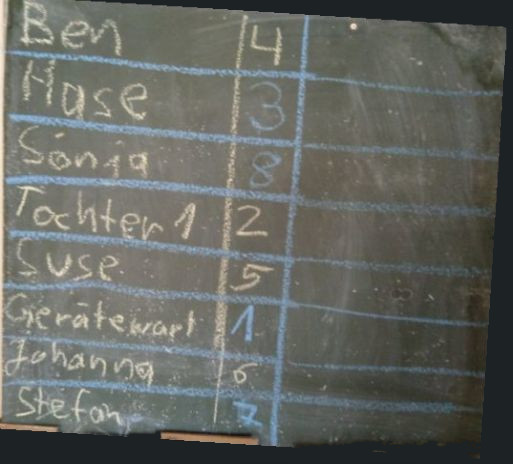 Ben 4
Hase 3
Sonja 8
Tochter 1 2
Suse 5
Gerätewart 1
Johanna 6
Stefan 7